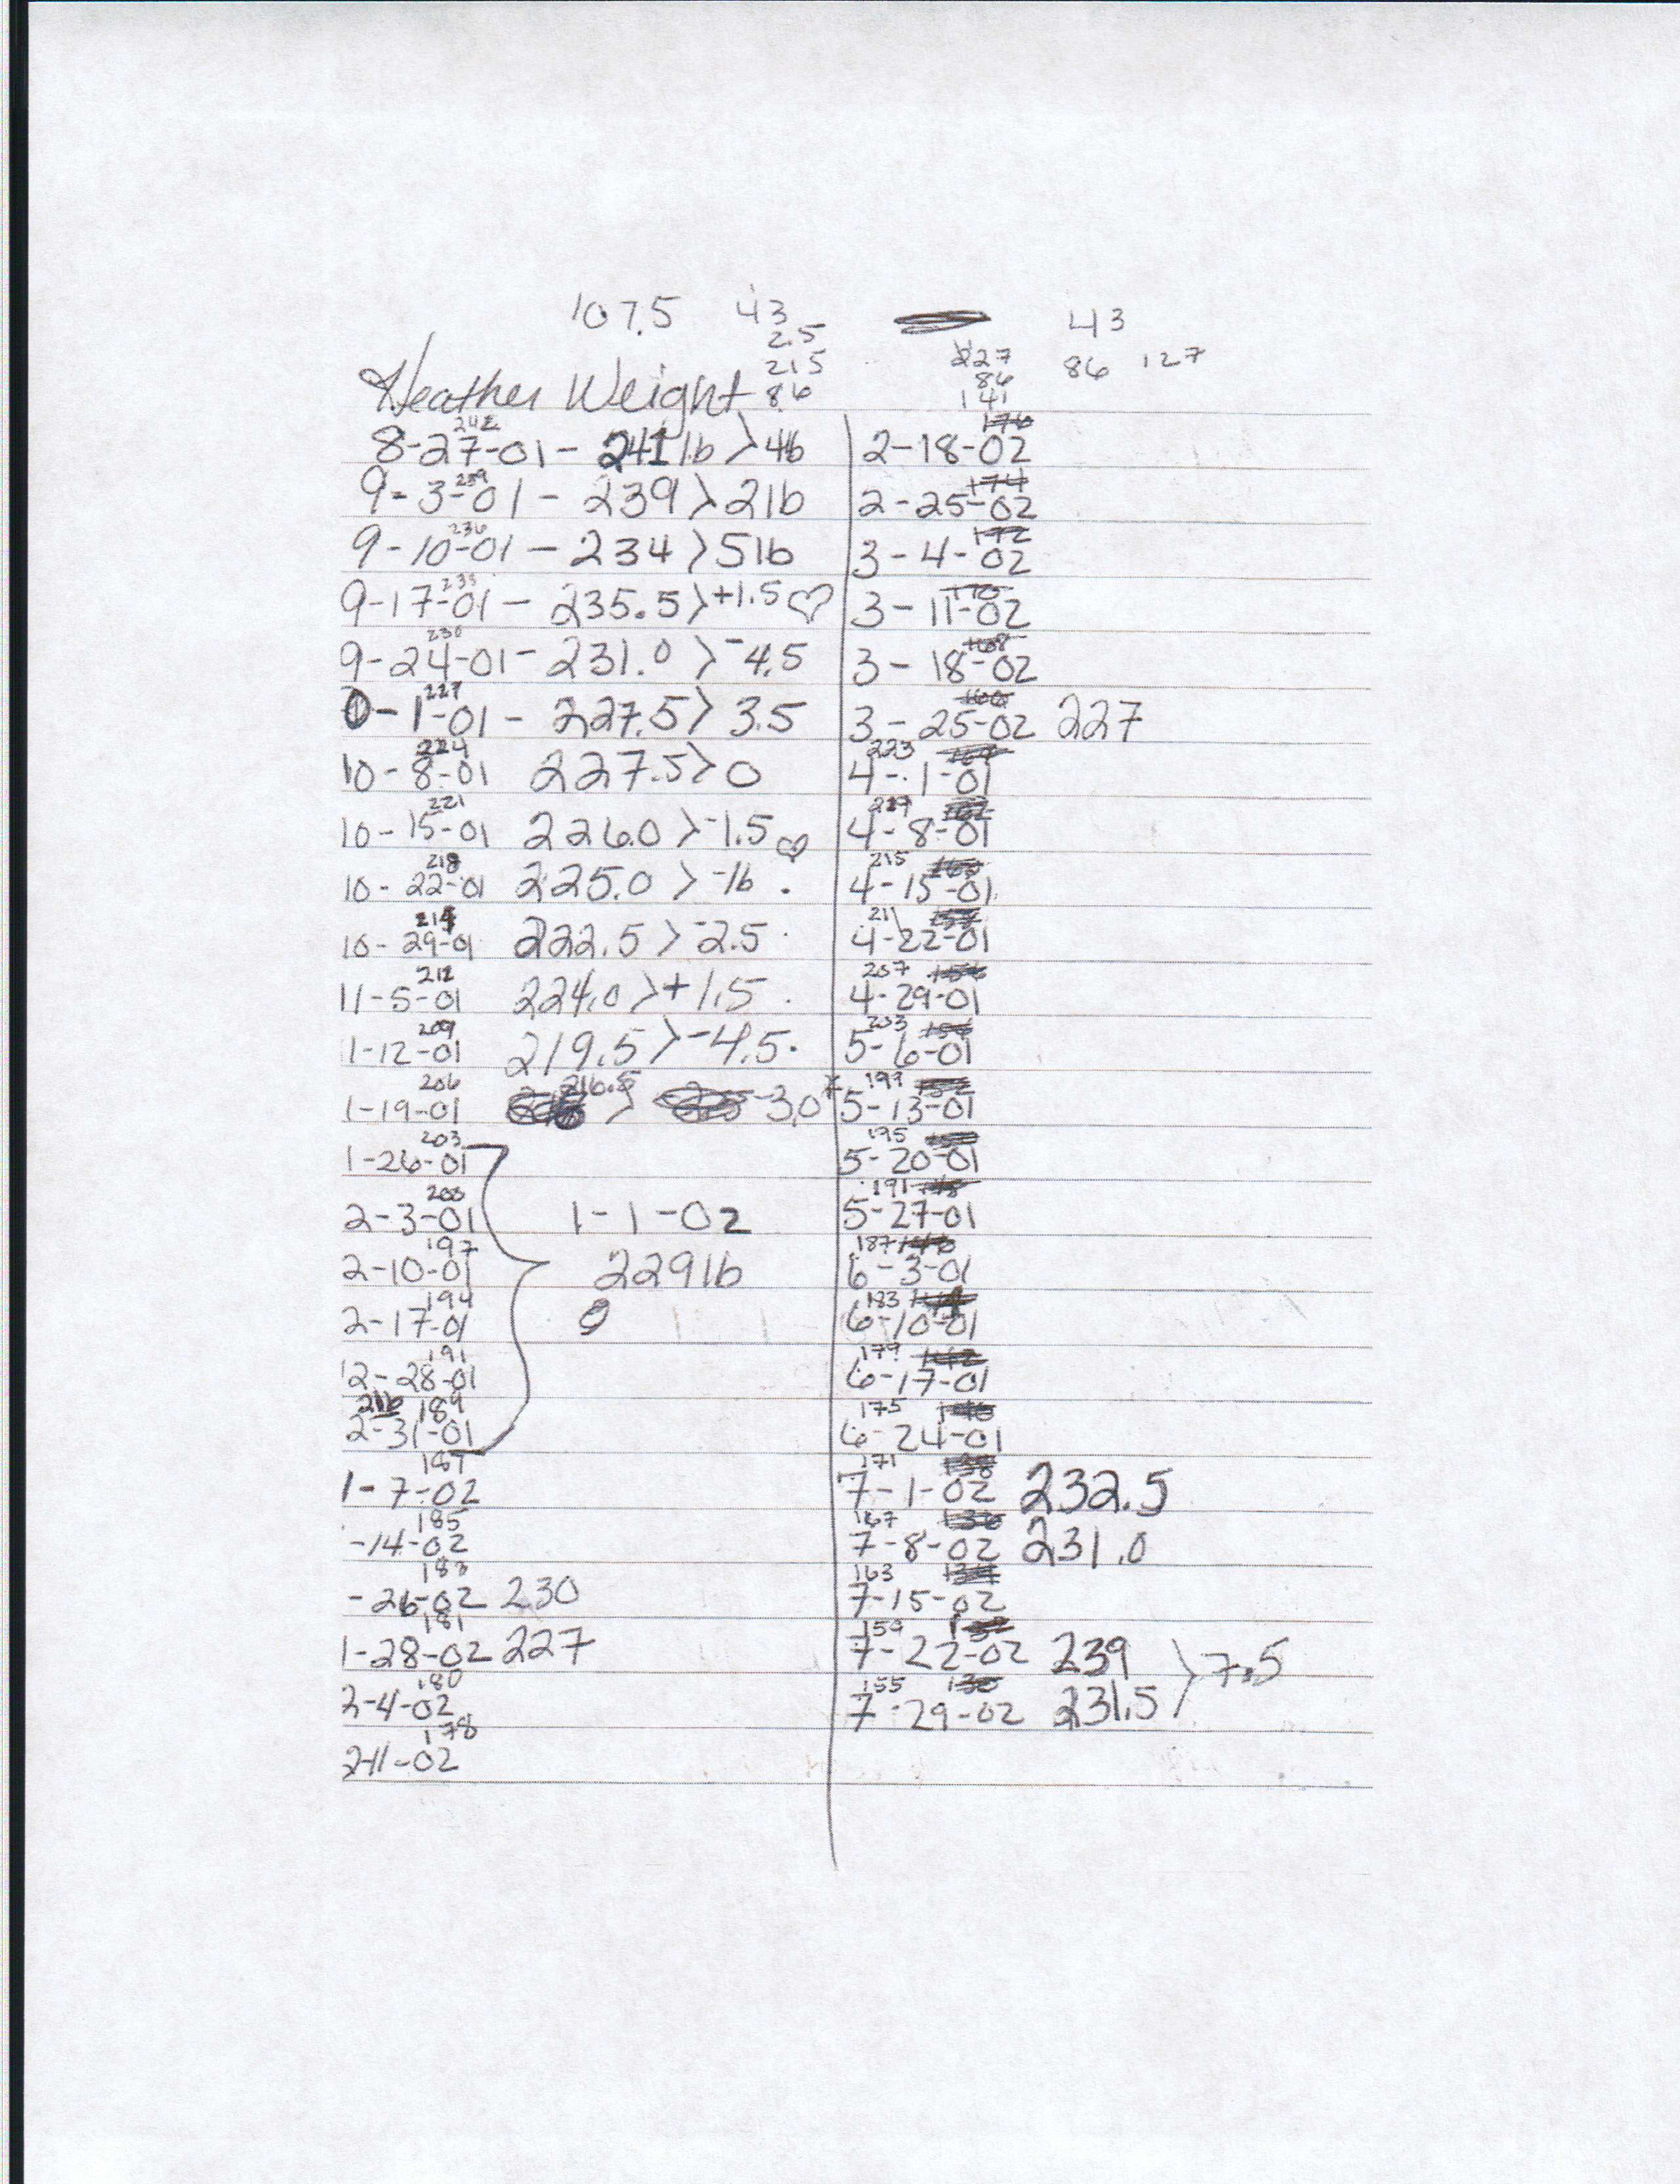 107.5 43 43
2.5
215 227 86 127
86 86
Heather Weight 141
242 176
8-27-01 - 241 lb > 4lb
2-18-02
239 174
9-3-01 - 239 > 2lb
2-25-02
236 172
9-10-01 - 234 > 5lb
3-4-02
233 170
9-17-01 - 235.5 > +1.5 ♡
3-11-02
230 168
9-24-01 - 231.0 > -4.5
3-18-02
227 166
0-1-01 - 227.5 > 3.5
3-25-02 227
224 223
10-8-01 227.5 > 0
4-1-01
221 219
10-15-01 226.0 > -1.5 ♡
4-8-01
218 215
10-22-01 225.0 > -1b .
4-15-01
211
10-29-01 222.5 > -2.5
4-22-01
212 207
11-5-01 224.0 > +1.5 .
4-29-01
209 203
1-12-01 219.5 > -4.5.
5-6-01
206 216.5 199
1-19-01 > -3.0 *
5-13-01
203 195
1-26-01
5-20-01
200 191
2-3-01 1-1-02
5-27-01
197 187
2-10-01 229lb
6-3-01
194 183
2-17-01
6-10-01
191 179
12-28-01
6-17-01
216 189 175
2-31-01
6-24-01
187 171
1-7-02
7-1-02 232.5
185 167
-14-02
7-8-02 231.0
183 163
-26-02 230
7-15-02
181 159
1-28-02 227
7-22-02 239 > 7.5
180 155 130
2-4-02
7-29-02 231.5
178
2-11-02